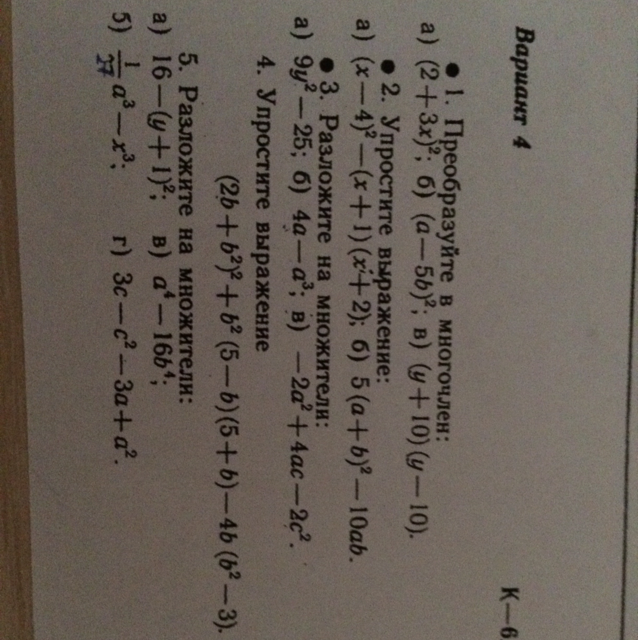 Вариант 4 К—6
● 1. Преобразуйте в многочлен:
а) (2+3x)²; б) (a—5b)²; в) (y+10)(y—10).
● 2. Упростите выражение:
а) (x—4)²—(x+1)(x+2); б) 5(a+b)²—10ab.
● 3. Разложите на множители:
а) 9y²—25; б) 4a—a³; в) —2a²+4ac—2c².
4. Упростите выражение
(2b+b²)²+b²(5—b)(5+b)—4b(b²—3).
5. Разложите на множители:
а) 16—(y+1)²; в) a⁴—16b⁴;
б) 1/27 a³—x³; г) 3c—c²—3a+a².